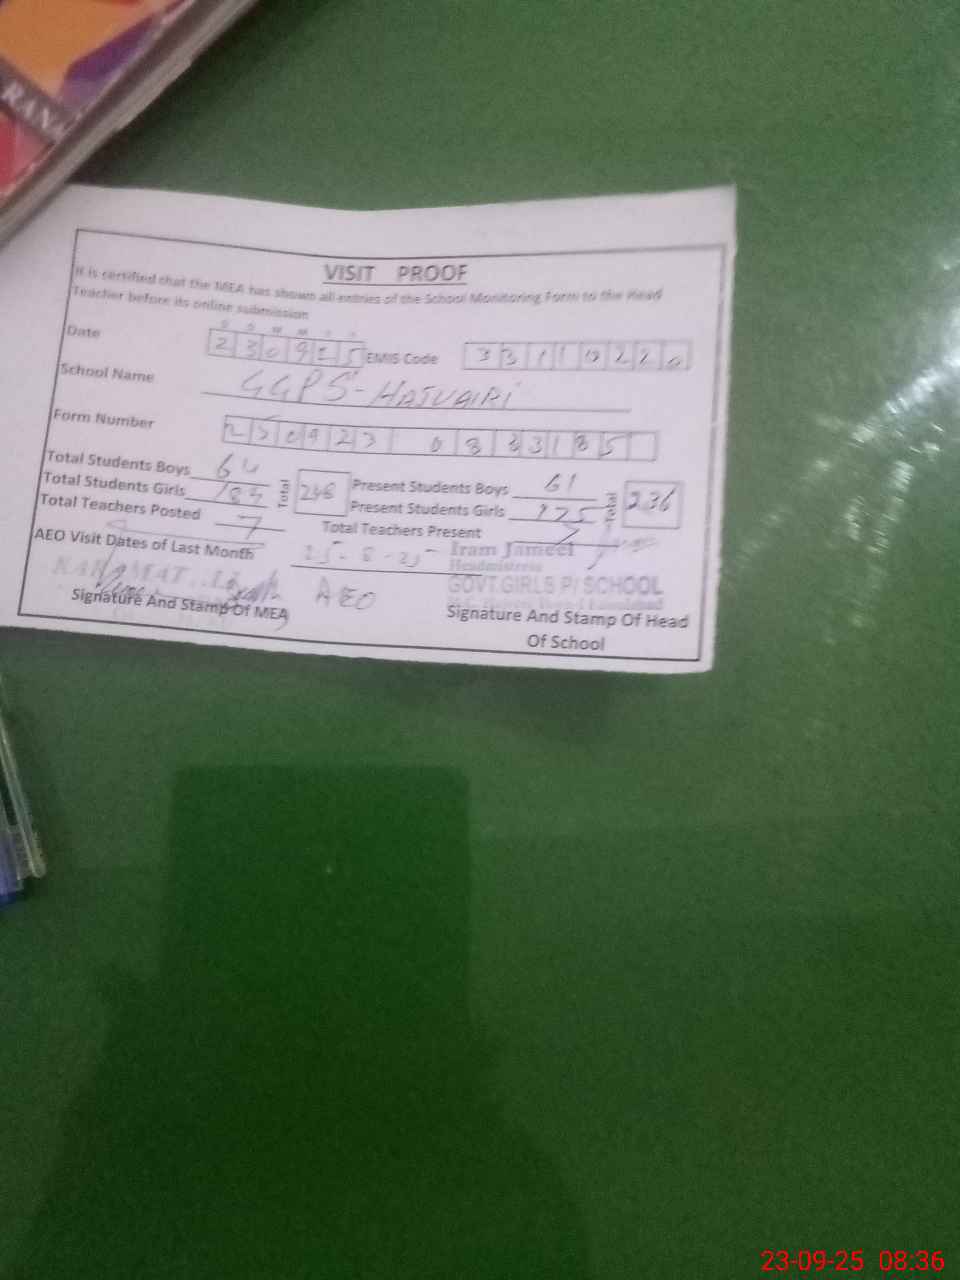 RAN
VISIT PROOF
It is certified that the MEA has shown all entries of the School Monitoring Form to the Head
Teacher before its online submission
D D M M Y Y
Date 2 3 0 9 2 5 EMIS Code 3 3 1 1 0 2 2 0
School Name GGPS-HAJVAIRI
Form Number
Total Students Boys 64 Present Students Boys 61
Total Students Girls Total Present Students Girls 175 Total 236
Total Teachers Posted 7 Total Teachers Present 7
AEO Visit Dates of Last Month 25-8-25 Iram Jameel
Headmistress
AEO GOVT.GIRLS P/SCHOOL
Signature And Stamp Of MEA Signature And Stamp Of Head
Of School
23-09-25 08:36